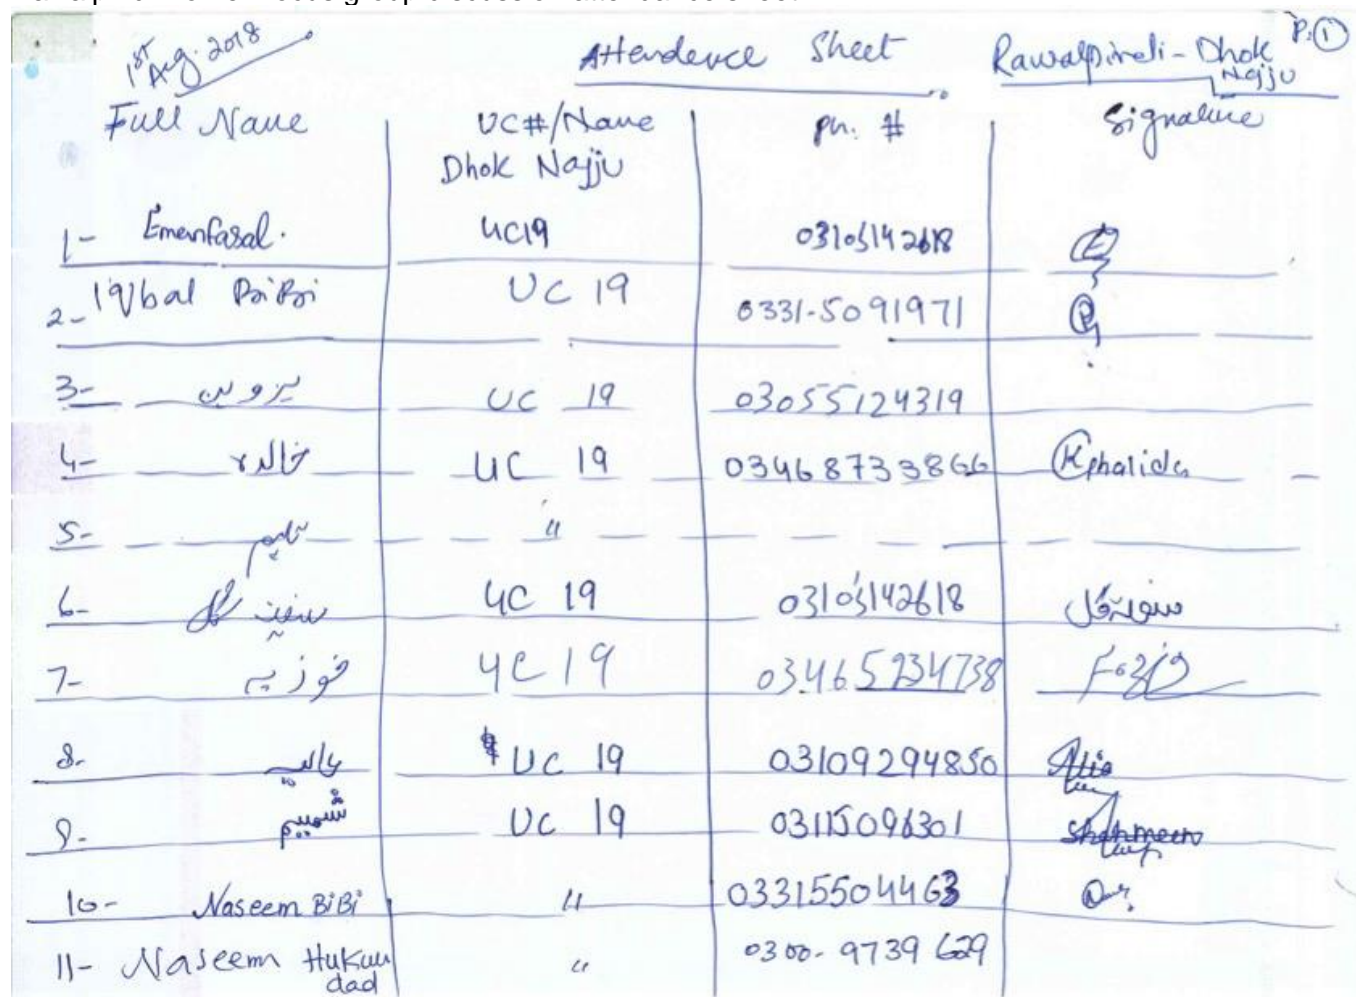 1ST Aug. 2018 Attendence Sheet Rawalpindi - Dhok Najju P: 1
Full Name UC#/Name Ph. # Signature
Dhok Najju
1- Emanfasal. UC19 03105142618
2- Iqbal BiBi UC 19 0331-5091971
3- پروین UC 19 03055124319
4- خالدہ UC 19 03468733866 Khalida
5- "
6- گل UC 19 03105142618
7- فوزیہ UC 19 03465234738 Fozia
8- عالیہ UC 19 03109294850 Alia
9- شمیم UC 19 03115096301 Shahmeen
10- Naseem BiBi " 03315504463
11- Naseem Hukum dad " 0300-9739629